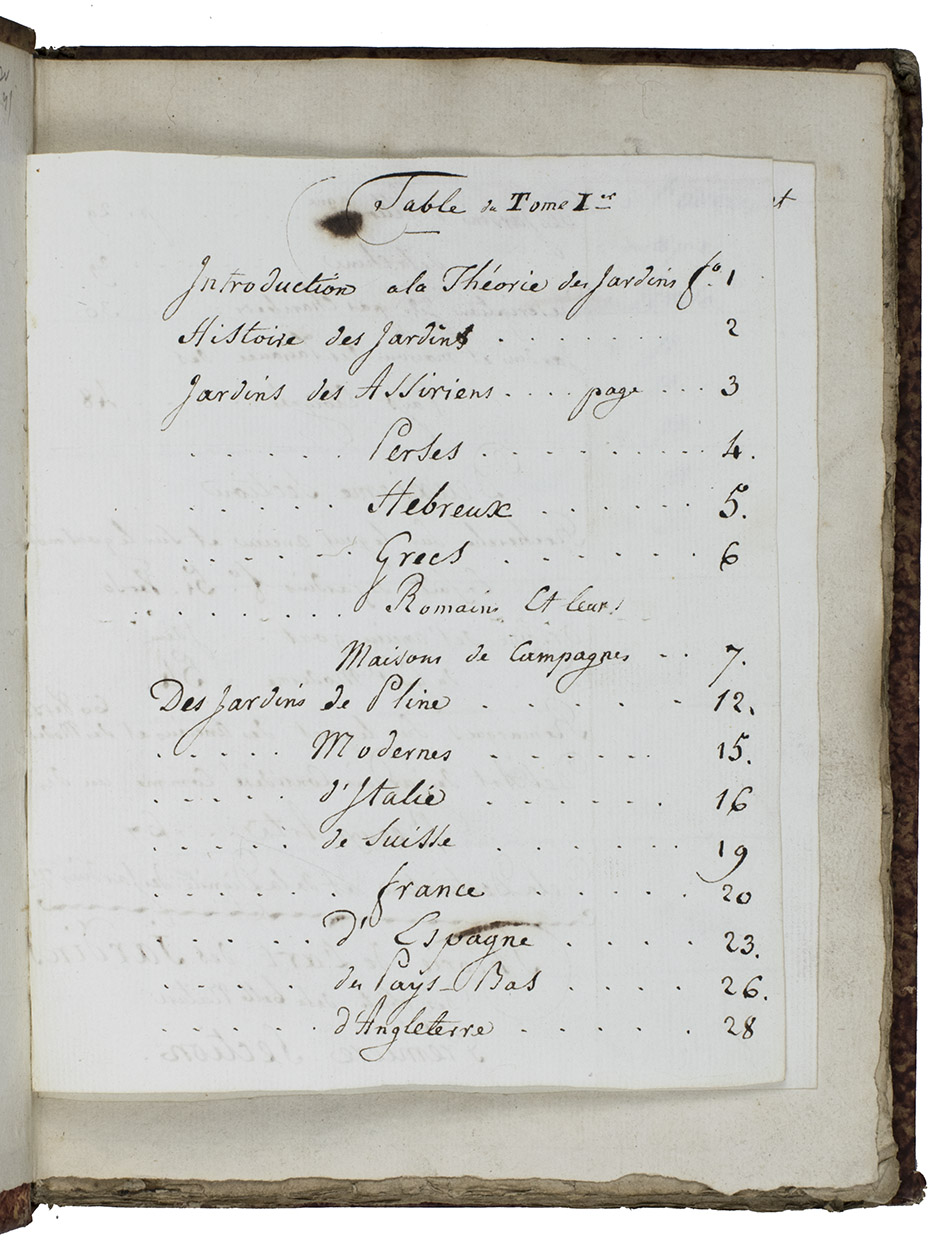 Table du Tome I.er
Introduction a la Théorie des Jardins fo. 1
Histoire des Jardins . . . . . . . . 2
Jardins des Assiriens . . . . page . . . 3
. . . . . . Perses . . . . . . . . . . 4.
. . . . . . Hebreux . . . . . . . 5.
. . . . . . Grecs . . . . . . . 6
. . . . . . Romains Et leurs
Maisons de Campagnes . . 7.
Des Jardins de Pline . . . . . . 12.
. . . . . Modernes . . . . . . 15.
. . . . . d'Italie . . . . . . 16
. . . . . de Suisse . . . . . . 19
. . . . . . france . . . . . 20
. . . . . . d'Espagne . . . . 23.
. . . . . du Pays-Bas . . . . . 26.
. . . . . . d'Angleterre . . . . . . 28